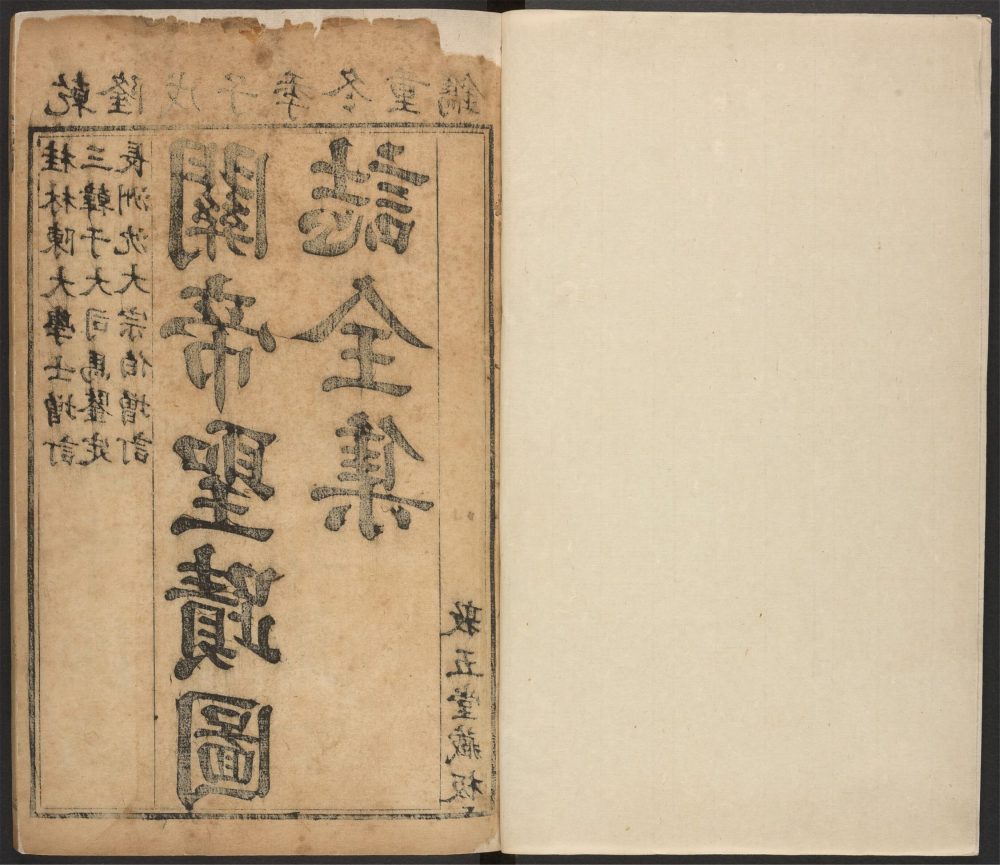 乾隆戊子季冬重鐫
桂林陳大學士增訂
三韓于大司馬鑒定
長洲沈大宗伯增訂
關帝聖蹟圖
誌全集
敦五堂藏板